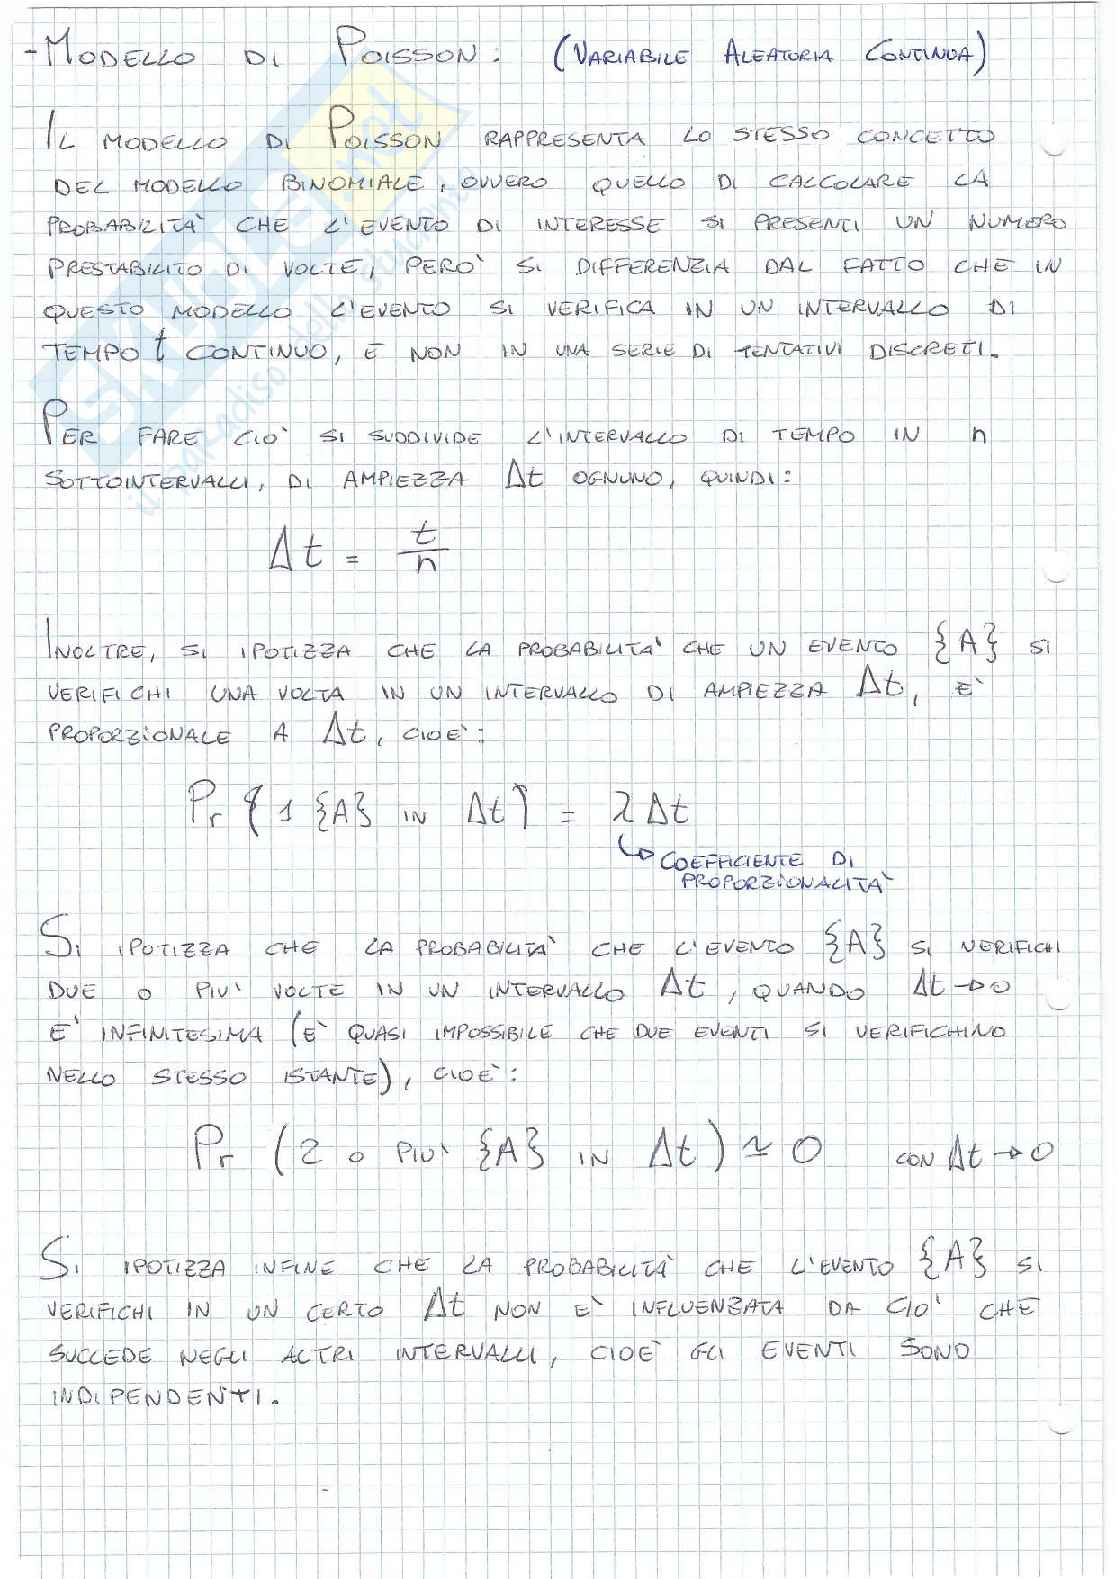 - MODELLO DI POISSON: (VARIABILE ALEATORIA CONTINUA)
IL MODELLO DI POISSON RAPPRESENTA LO STESSO CONCETTO
DEL MODELLO BINOMIALE, OVVERO QUELLO DI CALCOLARE LA
PROBABILITÀ CHE L'EVENTO DI INTERESSE SI PRESENTI UN NUMERO
PRESTABILITO DI VOLTE, PERÒ SI DIFFERENZIA DAL FATTO CHE IN
QUESTO MODELLO L'EVENTO SI VERIFICA IN UN INTERVALLO DI
TEMPO t CONTINUO, E NON IN UNA SERIE DI TENTATIVI DISCRETI.
PER FARE CIÒ SI SUDDIVIDE L'INTERVALLO DI TEMPO IN n
SOTTOINTERVALLI, DI AMPIEZZA Δt OGNUNO, QUINDI:
Δt = t/n
INOLTRE, SI IPOTIZZA CHE LA PROBABILITÀ CHE UN EVENTO {A} SI
VERIFICHI UNA VOLTA IN UN INTERVALLO DI AMPIEZZA Δt, È
PROPORZIONALE A Δt, CIOÈ:
Pr {1 {A} IN Δt} = λΔt
↳ COEFFICIENTE DI
PROPORZIONALITÀ
SI IPOTIZZA CHE LA PROBABILITÀ CHE L'EVENTO {A} SI VERIFICHI
DUE O PIÙ VOLTE IN UN INTERVALLO Δt, QUANDO Δt→0
È INFINITESIMA (È QUASI IMPOSSIBILE CHE DUE EVENTI SI VERIFICHINO
NELLO STESSO ISTANTE), CIOÈ:
Pr (2 O PIÙ {A} IN Δt) ≃ 0 CON Δt→0
SI IPOTIZZA INFINE CHE LA PROBABILITÀ CHE L'EVENTO {A} SI
VERIFICHI IN UN CERTO Δt NON È INFLUENZATA DA CIÒ CHE
SUCCEDE NEGLI ALTRI INTERVALLI, CIOÈ GLI EVENTI SONO
INDIPENDENTI.